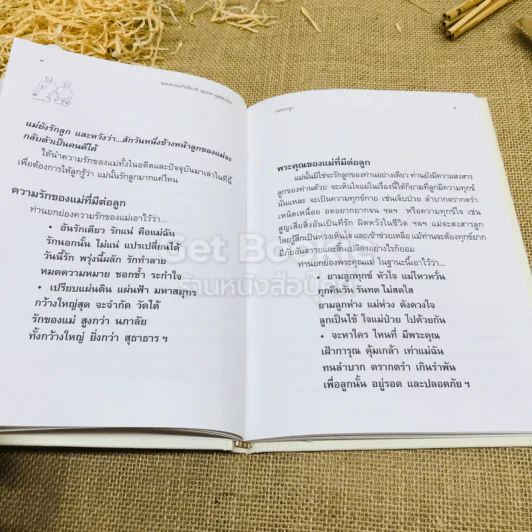 ๘
แม่ยังรักลูก และหวังว่า...สักวันหนึ่งข้างหน้าลูกของแม่จะ
กลับตัวเป็นคนดีได้
ได้นำความรักของแม่ทั้งในอดีตและปัจจุบันมาเล่าในที่นี้
เพื่อต้องการให้ลูกรู้ว่า แม่นั้นรักลูกมากแค่ไหน
ความรักของแม่ที่มีต่อลูก
ท่านยกย่องความรักของแม่เอาไว้ว่า...
• อันรักเดียว รักแน่ คือแม่ฉัน
รักนอกนั้น ไม่แน่ แปรเปลี่ยนได้
วันนี้รัก พรุ่งนี้ผลัก รักทำลาย
หมดความหมาย ชอกช้ำ ระกำใจ
• เปรียบแผ่นดิน แผ่นฟ้า มหาสมุทร
กว้างใหญ่สุด จะจำกัด วัดได้
รักของแม่ สูงกว่า นภาลัย
ทั้งกว้างใหญ่ ยิ่งกว่า สุธาธาร ฯ
พระคุณของแม่ที่มีต่อลูก
แม่นั้นมิใช่จะรักลูกของท่านอย่างเดียว ท่านยังมีความสงสาร
ลูกของท่านด้วย จะเห็นใจแม่ในเรื่องนี้ได้ก็ยามที่ลูกมีความทุกข์
นั่นแหละ จะเป็นความทุกข์กาย เช่นเจ็บป่วย ลำบากตรากตรำ
เหน็ดเหนื่อย อดอยากยากจน ฯลฯ หรือความทุกข์ใจ เช่น
สูญเสียสิ่งอันเป็นที่รัก ผิดหวังในชีวิต ฯลฯ แม่จะสงสารลูก
โดยรู้สึกเป็นห่วงเห็นใจ และเข้าช่วยเหลือ แม้ว่าท่านจะต้องทุกข์ยาก
มีภัยอันตรายและสิ้นเปลืองอย่างไรก็ยอม
ท่านยกย่องพระคุณแม่ ในฐานะนี้เอาไว้ว่า...
• ยามลูกทุกข์ หัวใจ แม่ไหวหวั่น
ทุกคืนวัน รันทด ไม่สดใส
ยามลูกห่าง แม่ห่วง ดังดวงใจ
ลูกเป็นไข้ ใจแม่ป่วย ไปด้วยกัน
• จะหาใคร ไหนที่ มีพระคุณ
เฝ้าการุณ คุ้มเกล้า เท่าแม่ฉัน
ทนลำบาก ตรากตรำ เกินรำพัน
เพื่อลูกนั้น อยู่รอด และปลอดภัย ฯ
Set Book